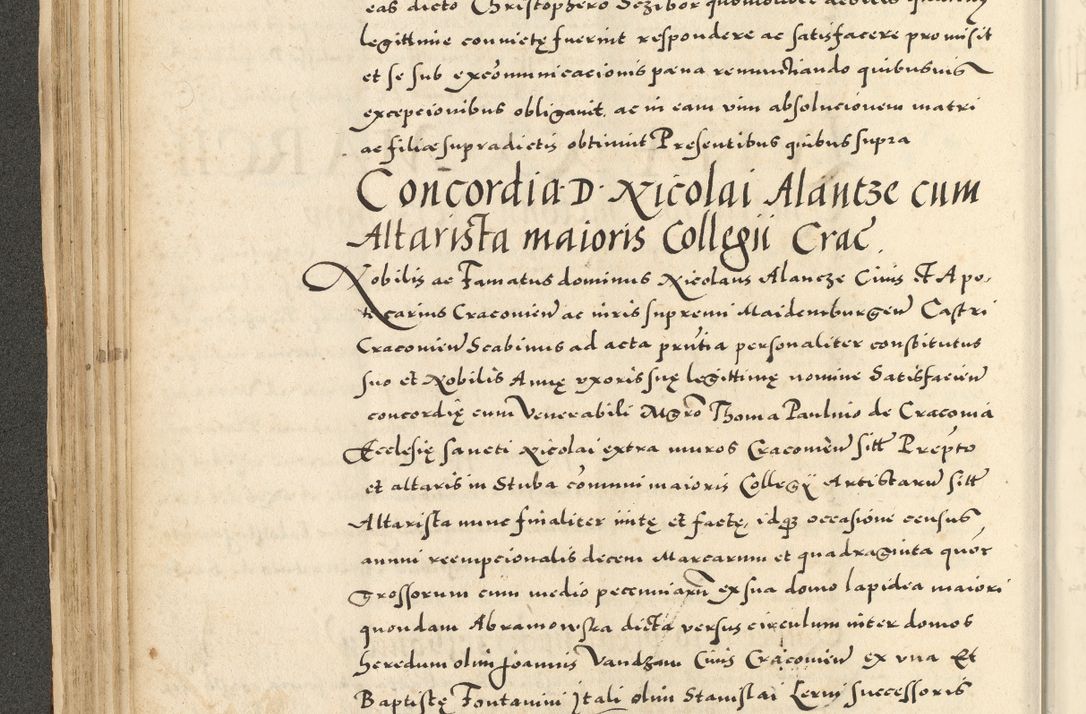 eas dicto Christophero Sczibor quomodolibet
legittime convictę fuerint respondere ac satisfacere promisit
et se sub excom̄unicacionis pæna renunctiando quibusuis
excepcionibus obligauit, ac in eam vim absolucionem matri
ac filiæ supradictis obtinuit Presentibus quibus supra
Concordia D. Nicolai Alantze cum
Altarista maioris Collegii Crac̄.
Nobilis ac Famatus dominus Nicolaus Alancze Ciuis Et Apo-
tecarius Cracouien̄ ac iuris supremi Maidemburgen̄ Castri
Cracouien̄ Scabinus ad acta pn̄tia personaliter constitutus
suo et Nobilis Annę vxoris suę legittimę nomine Satisfacien̄
concordię cum Venerabili Mgr̄o Thoma Paulnio de Cracouia
Ecclesię sancti Nicolai extra muros Cracouien̄ sitt̄ Prep̄to
et altaris in Stuba com̄uni maioris Collegÿ Artistarū sitt̄
Altarista nunc finaliter initę et factę, idqꝫ occasione census
annui reempcionalis decem Marcarum et quadraginta quor
grossorum cum medio pecuniarū ex sua domo lapidea maiori
quondam Abramowska dicta versus circulum inter domos
heredum olim Joannis Vandzam Ciuis Cracouien̄ ex vna Et
Baptistę Fontanini Itali olim Stanislai Lerni successoris